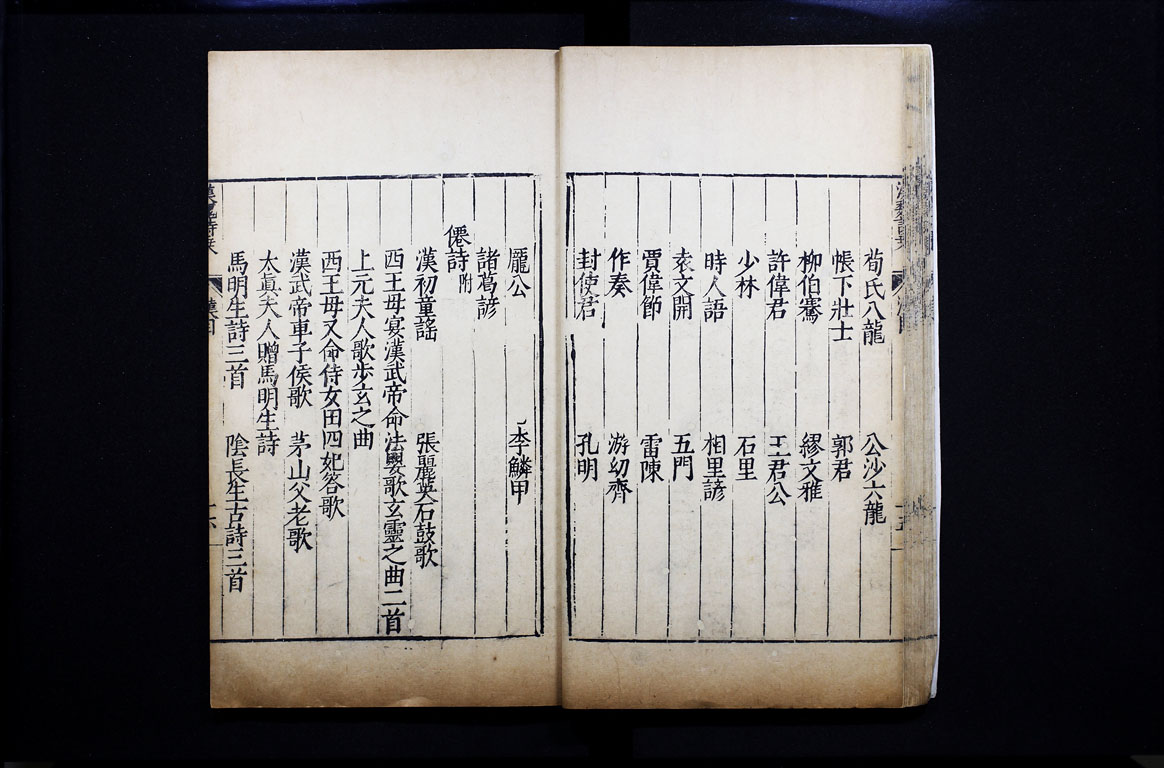 荀氏八龍 公沙六龍
帳下壯士 郭君
柳伯騫 繆文雅
許偉君 王君公
少林 石里
時人語 相里諺
袁文開 五門
賈偉節 雷陳
作奏 游幼齊
封使君 孔明
龐公 李鱗甲
諸葛諺
僊詩附
漢初童謠 張麗英石鼓歌
西王母宴漢武帝命法嬰歌玄靈之曲二首
上元夫人歌步玄之曲
西王母又命侍女田四妃答歌
漢武帝車子侯歌 茅山父老歌
太眞夫人贈馬明生詩
馬明生詩三首 陰長生古詩三首